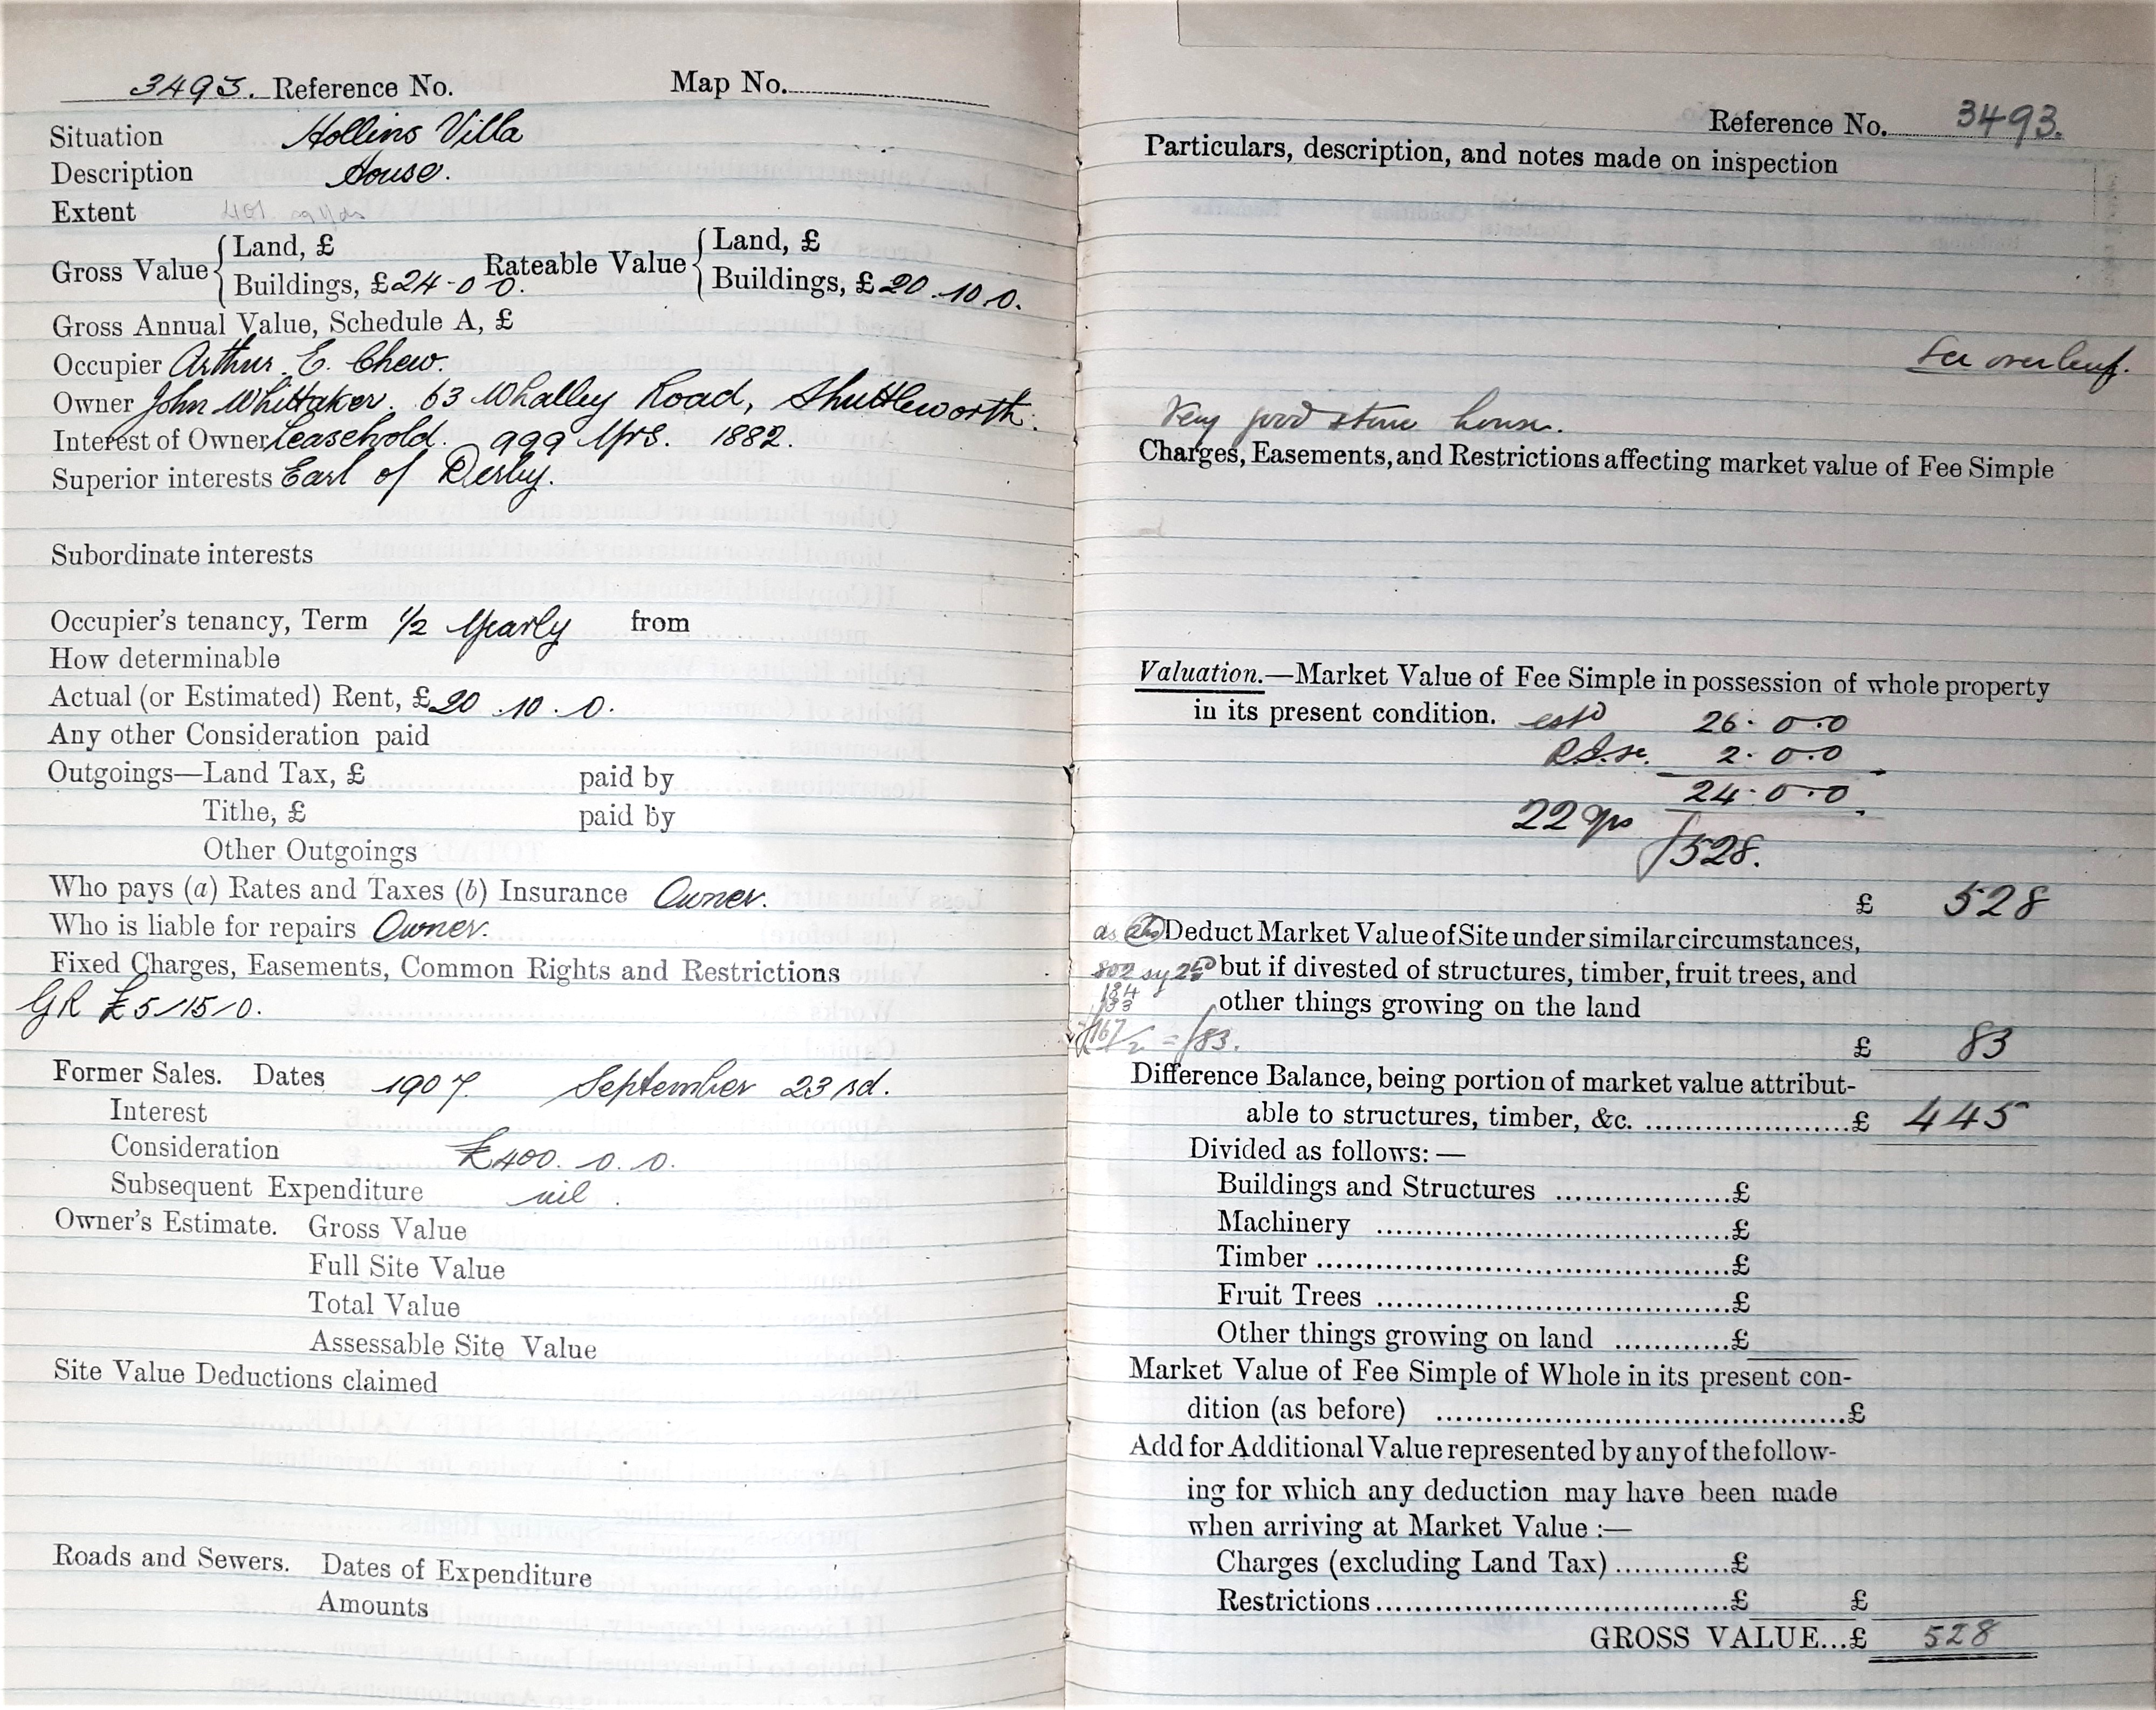 3493. Reference No. Map No.
Situation Hollins Villa
Description House.
Extent 401 sq yds
Gross Value { Land, £
Buildings, £24-0 0. Rateable Value { Land, £
Buildings, £20.10.0.
Gross Annual Value, Schedule A, £
Occupier Arthur. E. Chew.
Owner John Whittaker. 63 Whalley Road, Shuttleworth.
Interest of Owner Leasehold. 999 Yrs. 1882.
Superior interests Earl of Derby.
Subordinate interests
Occupier's tenancy, Term 1/2 Yearly from
How determinable
Actual (or Estimated) Rent, £20.10.0.
Any other Consideration paid
Outgoings—Land Tax, £ paid by
Tithe, £ paid by
Other Outgoings
Who pays (a) Rates and Taxes (b) Insurance Owner.
Who is liable for repairs Owner.
Fixed Charges, Easements, Common Rights and Restrictions
GR £5/15/0.
Former Sales. Dates 1907. September 23rd.
Interest
Consideration £400. 0. 0.
Subsequent Expenditure nil.
Owner's Estimate. Gross Value
Full Site Value
Total Value
Assessable Site Value
Site Value Deductions claimed
Roads and Sewers. Dates of Expenditure
Amounts
Reference No. 3493.
Particulars, description, and notes made on inspection
See overleaf.
Very good stone house.
Charges, Easements, and Restrictions affecting market value of Fee Simple
Valuation.—Market Value of Fee Simple in possession of whole property
in its present condition. est 26.0.0
2.0.0
24.0.0
22 yps £528.
£ 528
as Deduct Market Value of Site under similar circumstances,
802 sy but if divested of structures, timber, fruit trees, and
other things growing on the land
167/2 = £83.
£ 83
Difference Balance, being portion of market value attribut-
able to structures, timber, &c. ....................£ 445
Divided as follows:—
Buildings and Structures ..................£
Machinery ....................................£
Timber ..........................................£
Fruit Trees ....................................£
Other things growing on land ............£
Market Value of Fee Simple of Whole in its present con-
dition (as before) ..........................................£
Add for Additional Value represented by any of the follow-
ing for which any deduction may have been made
when arriving at Market Value :—
Charges (excluding Land Tax)............£
Restrictions....................................£ £
GROSS VALUE...£ 528